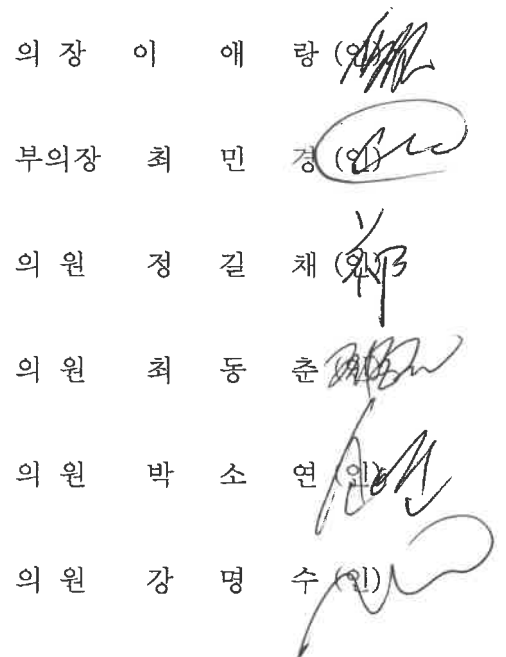 의 장 이 애 랑 (인)
부의장 최 민 경 (인)
의 원 정 길 채 (인) 鄭
의 원 최 동 춘
의 원 박 소 연 (인)
의 원 강 명 수 (인)